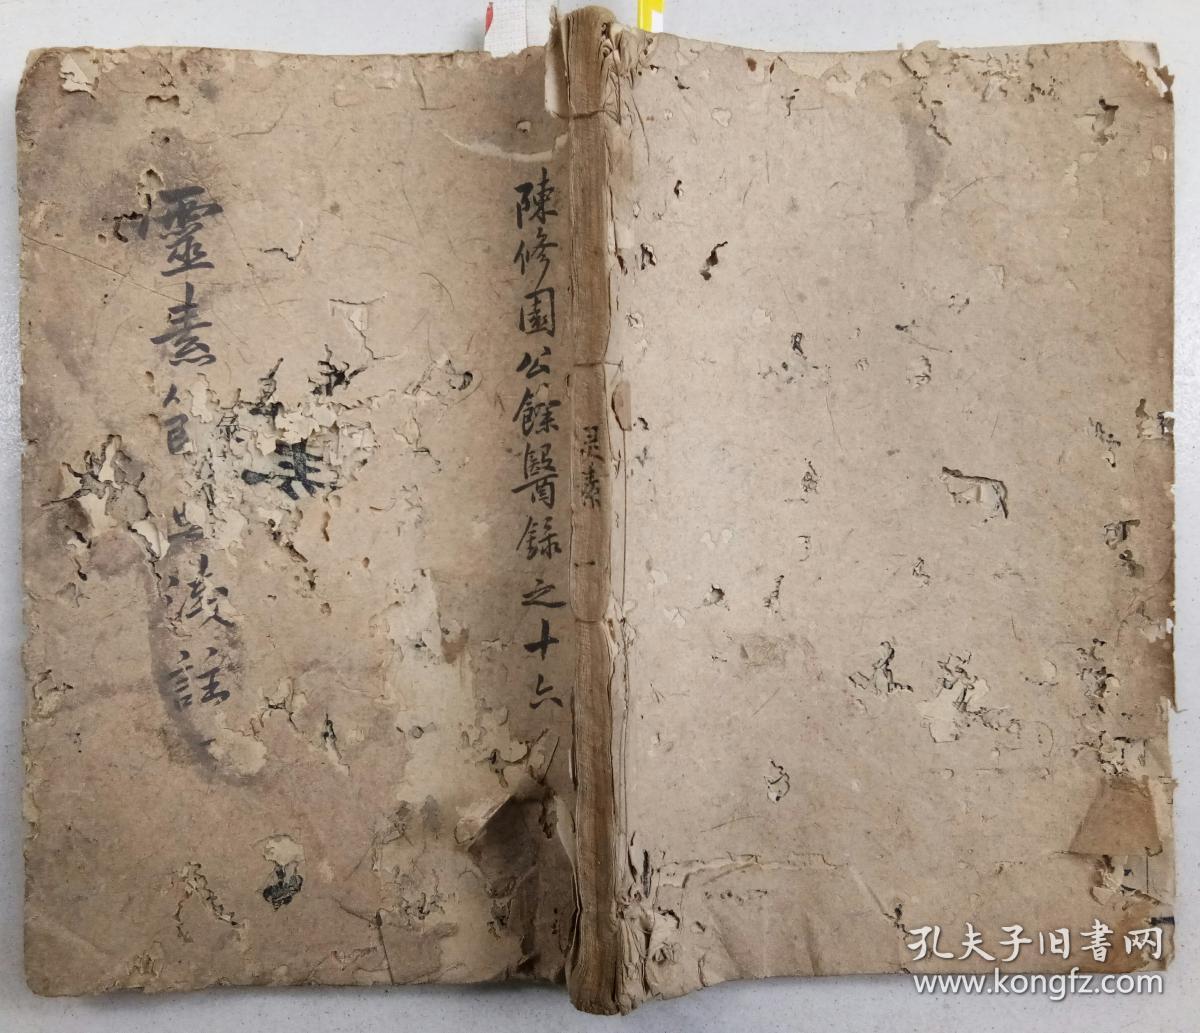 陳修園公餘醫錄之十六
靈素
淺註
灵素 一
孔夫子旧書网
www.kongfz.com